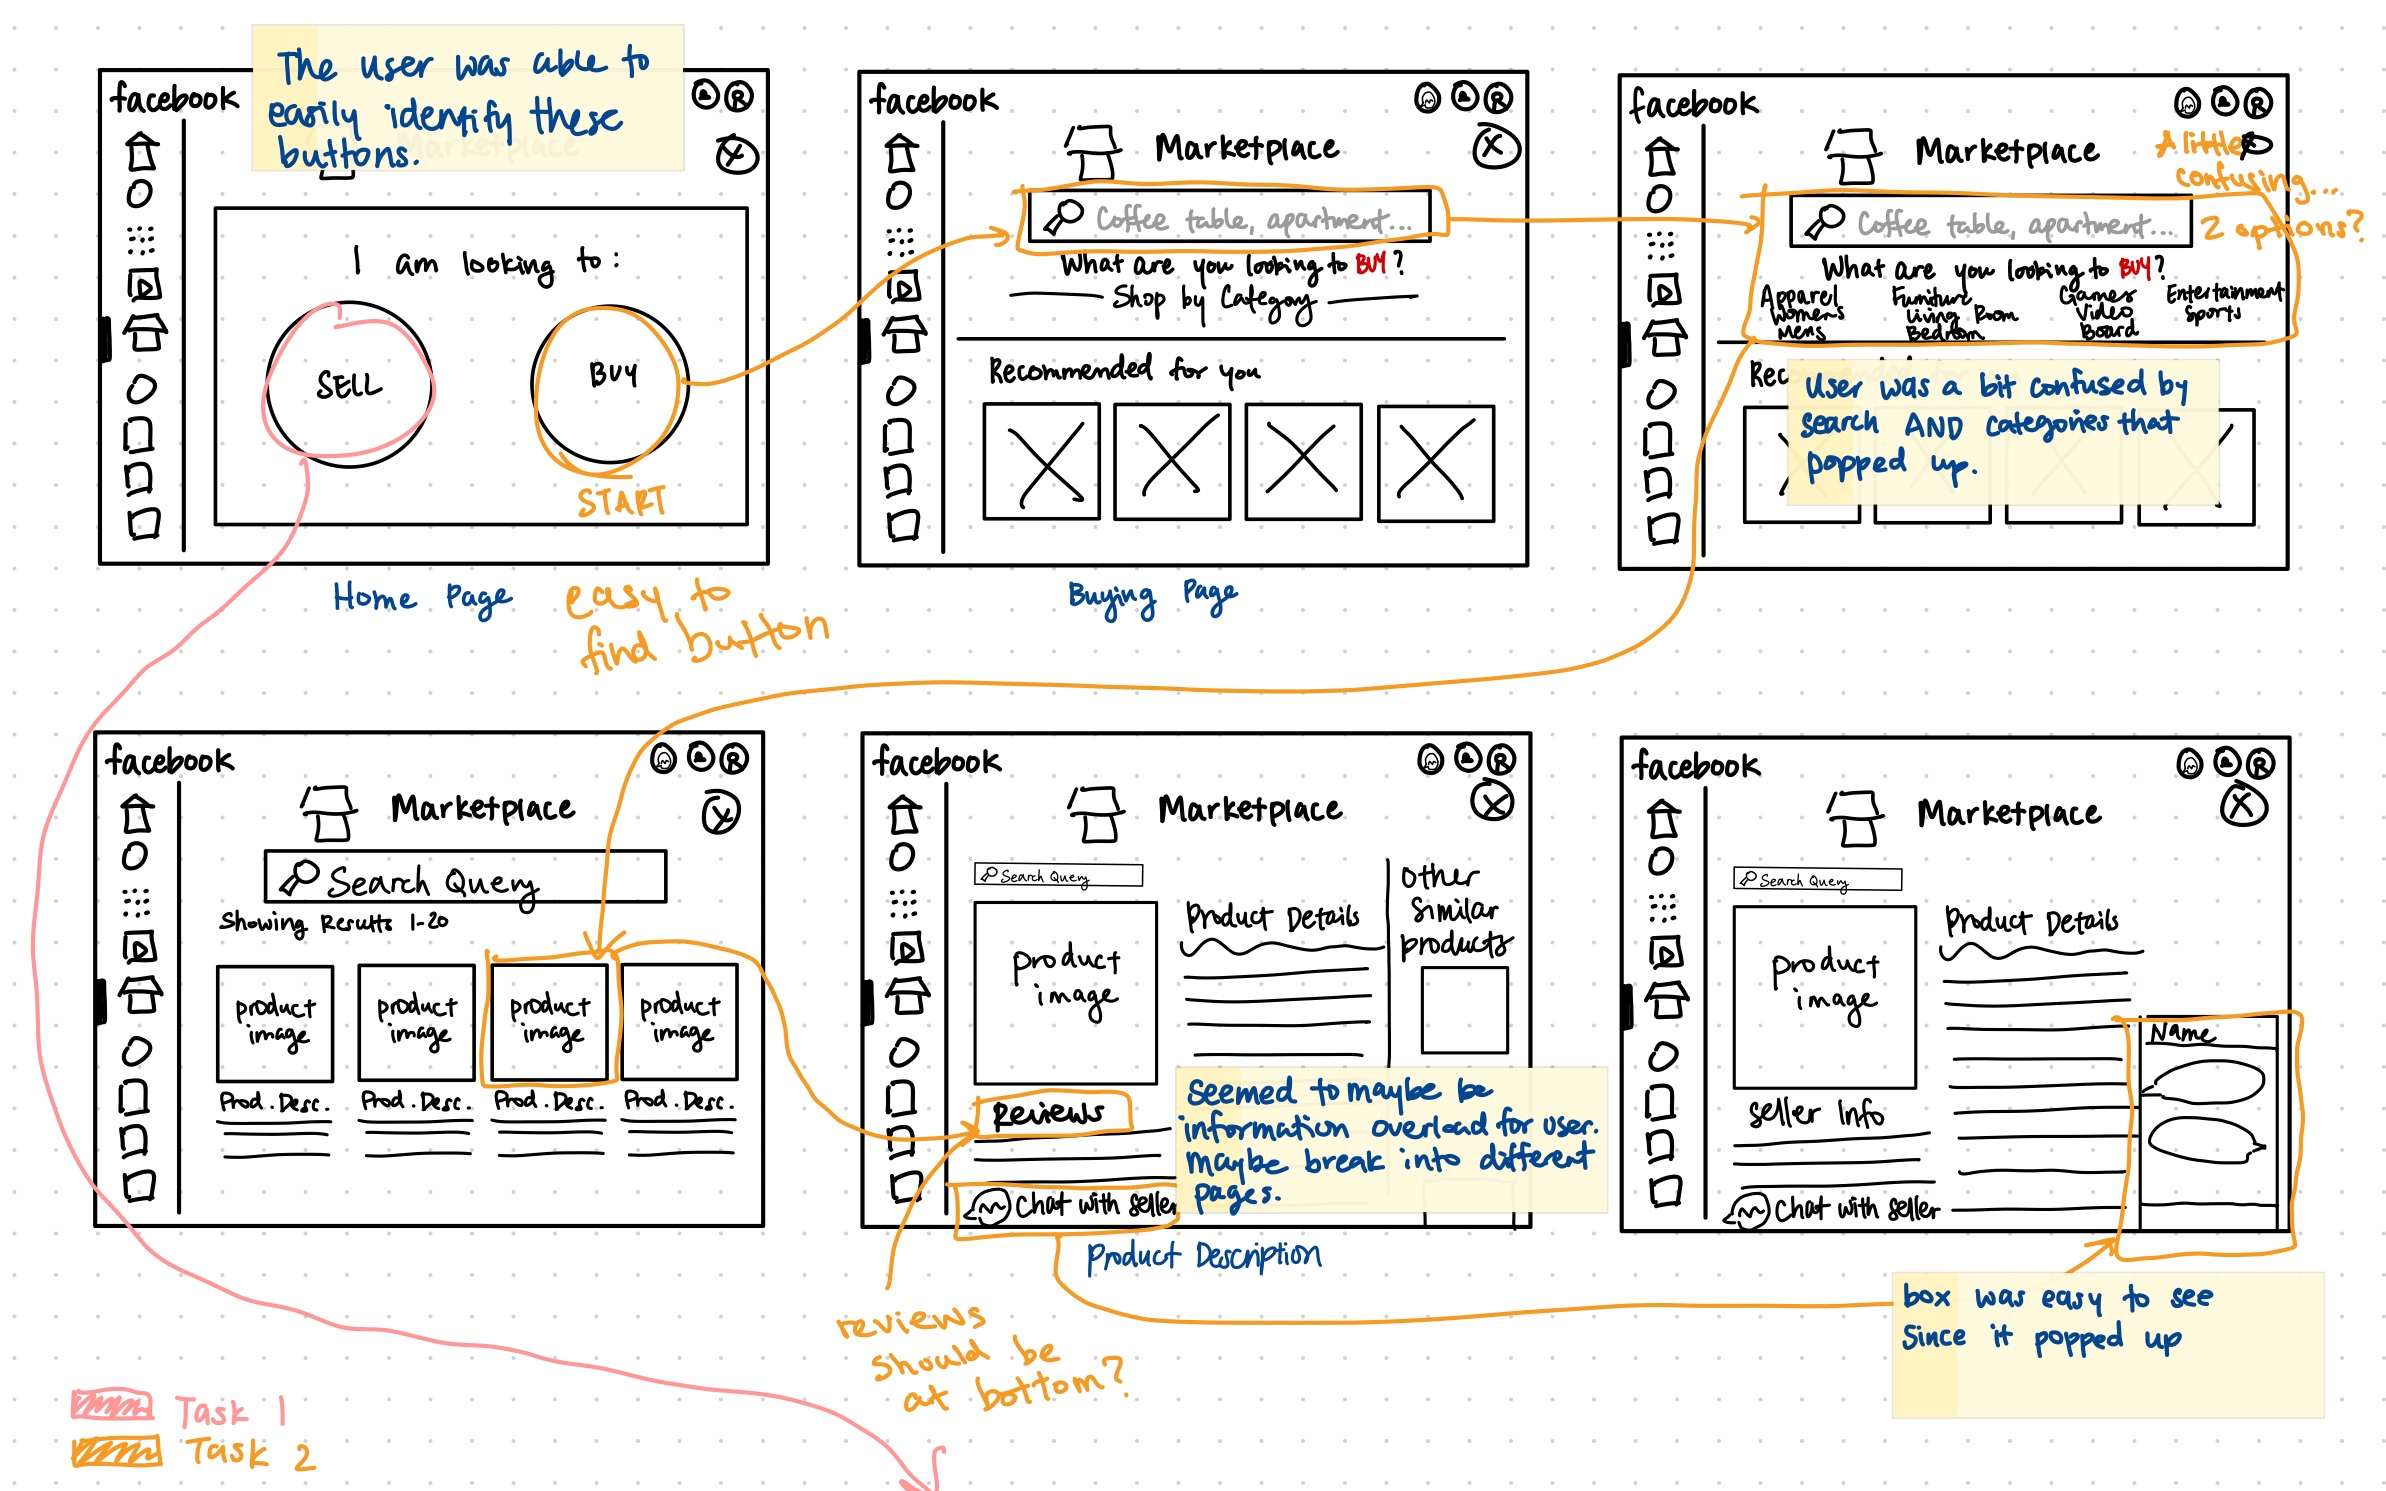 The user was able to
easily identify these
buttons.
facebook
I am looking to:
SELL
BUY
START
Home Page
easy to
find button
facebook
Marketplace
Coffee table, apartment...
What are you looking to BUY?
Shop by Category
Recommended for you
Buying Page
facebook
Marketplace
A little
confusing...
2 options?
Coffee table, apartment...
What are you looking to BUY?
Apparel
Womens
Mens
Furniture
Living Room
Bedroom
Games
Video
Board
Entertainment
Sports
Rec
User was a bit confused by
search AND categories that
popped up.
facebook
Marketplace
Search Query
Showing Results 1-20
product
image
product
image
product
image
product
image
Prod. Desc.
Prod. Desc.
Prod. Desc.
Prod. Desc.
facebook
Marketplace
Search Query
product
image
Product Details
other
similar
products
Reviews
Chat with seller
Seemed to maybe be
information overload for user.
maybe break into different
pages.
Product Description
reviews
should be
at bottom?
facebook
Marketplace
Search Query
product
image
Product Details
Name
seller Info
Chat with seller
box was easy to see
since it popped up
Task 1
Task 2